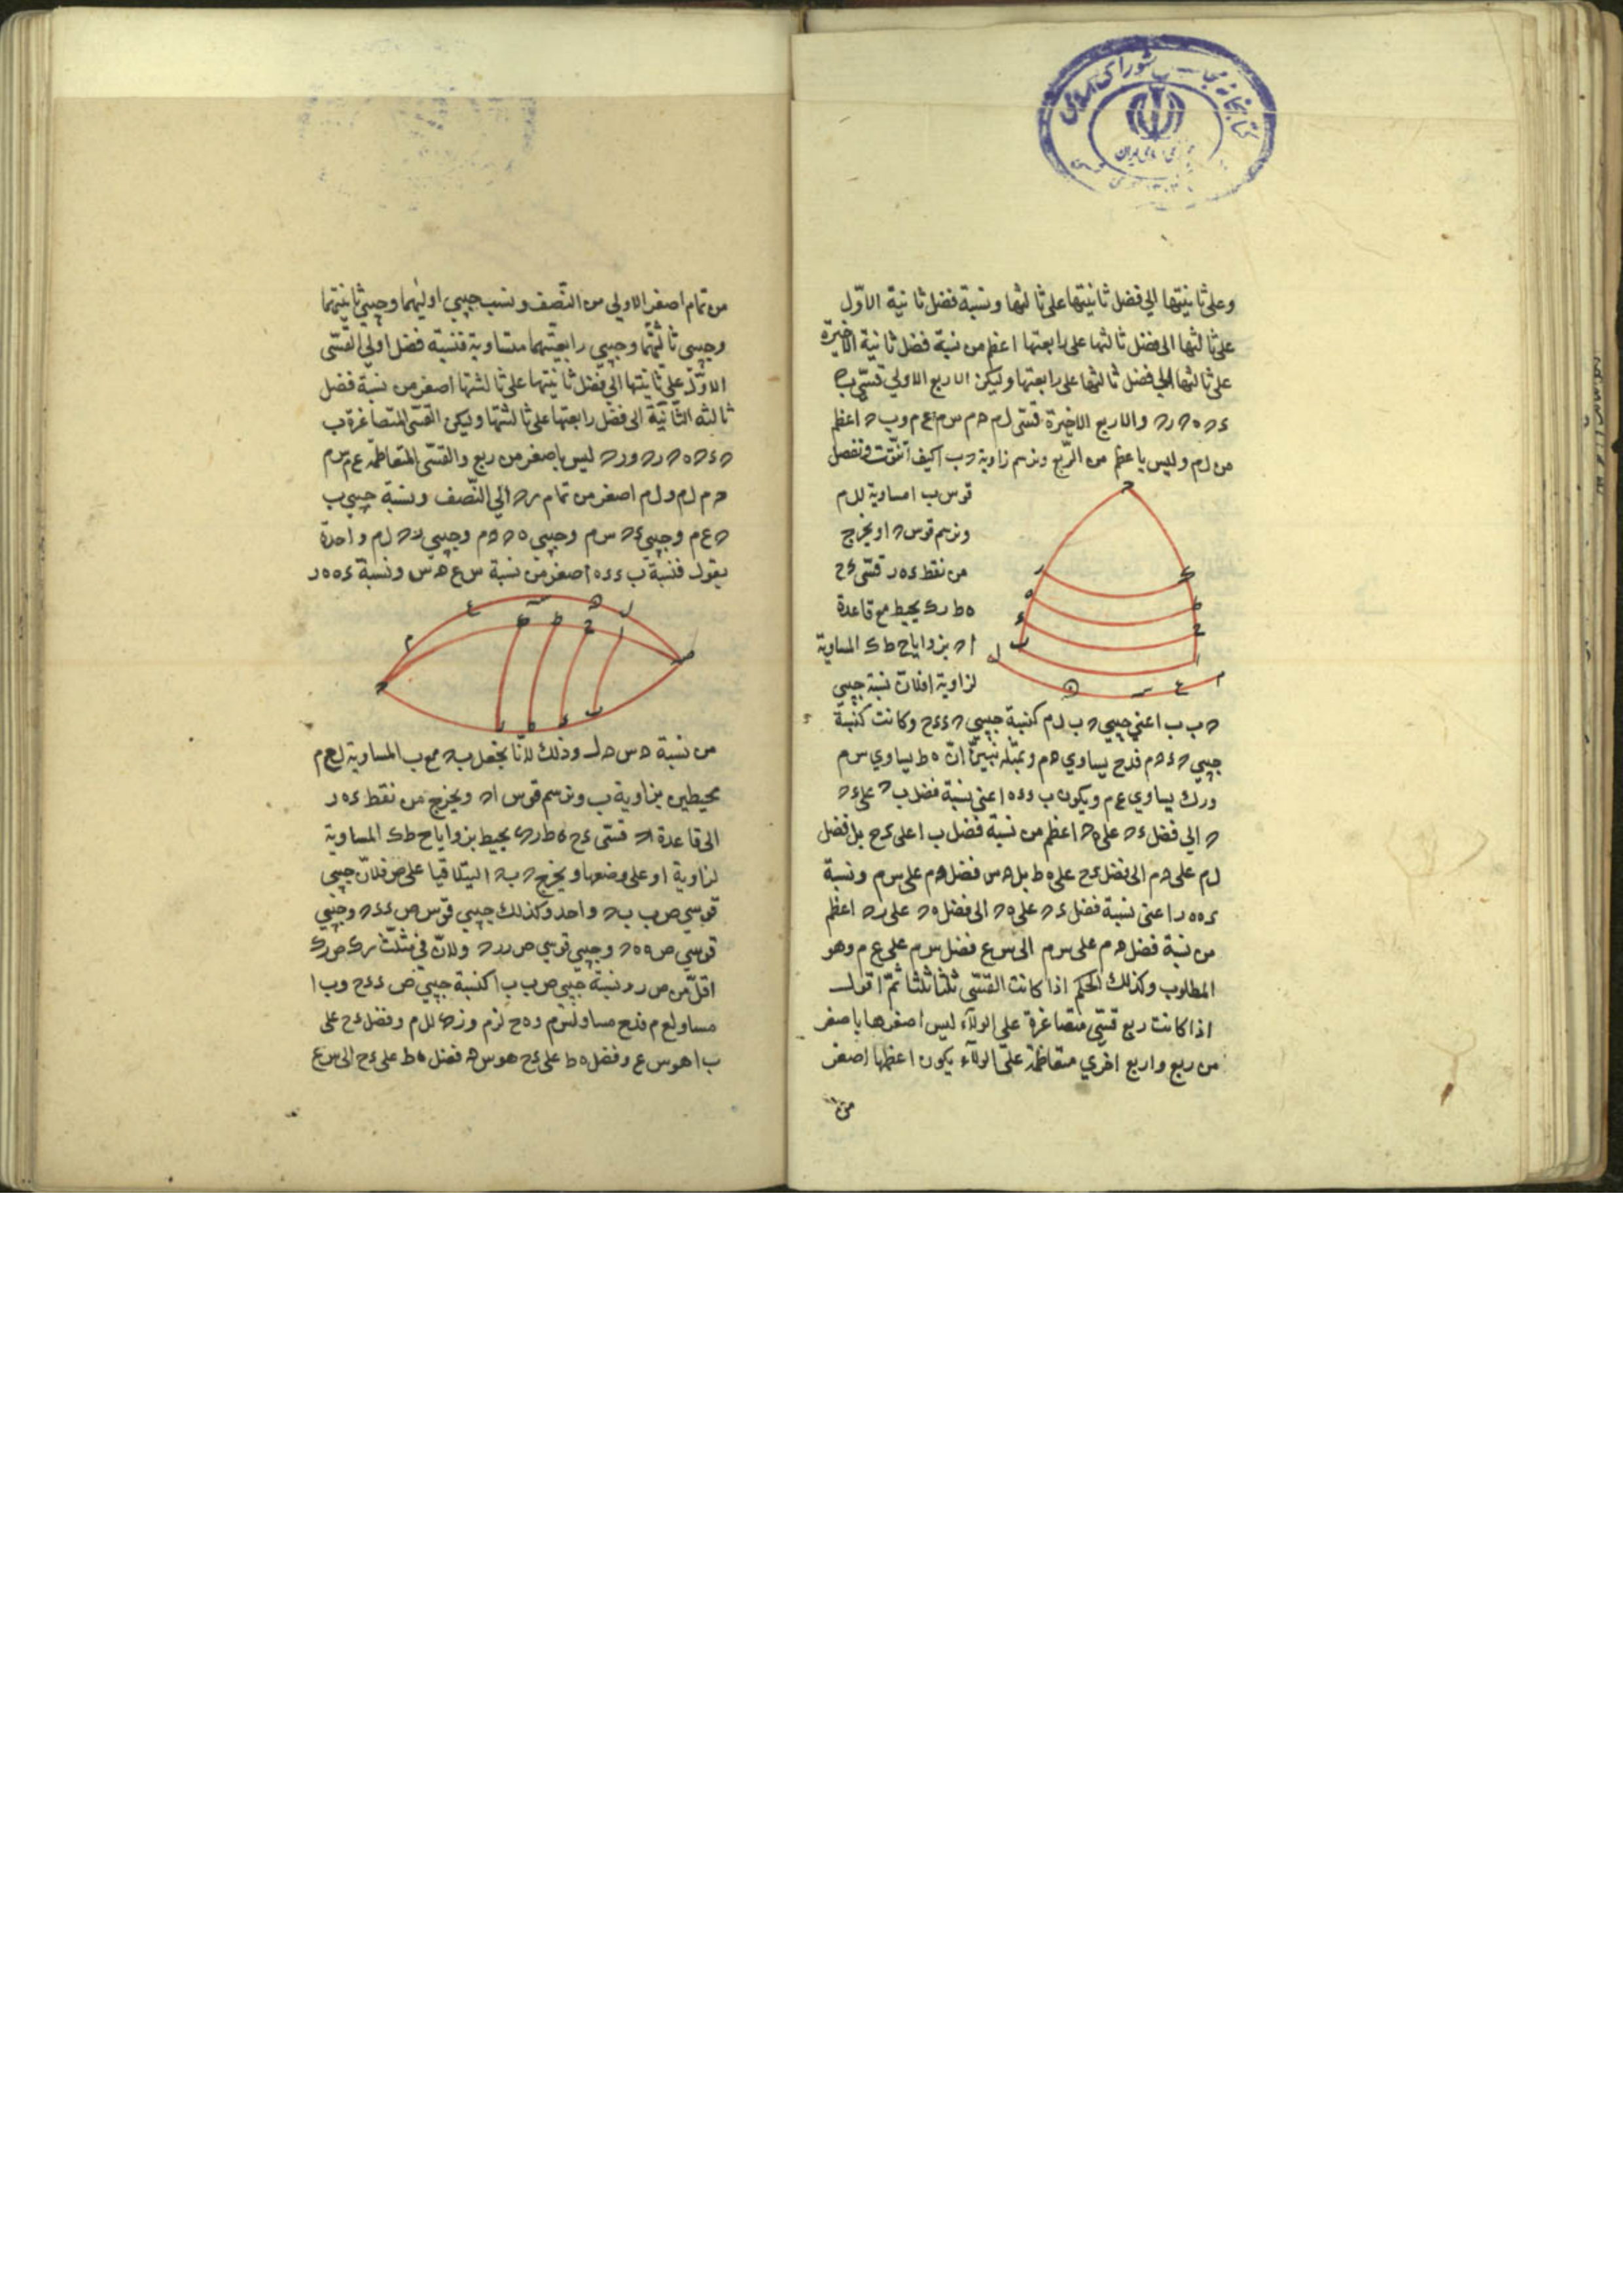 وعلى ثانيتها الى فضل ثانيتها على ثالثها ونسبة فضل ثانية الاوّل
على ثالثها الى فضل ثالثها على رابعتها اعظم من نسبة فضل ثانية الاخيرة
على ثالثها الى فضل ثالثها على رابعتها وليكن الاربع الاولى قسىّ ب ح
ء ح ه ح ر ح والاربع الاخيرة قسى ل م ح م س م ع م و ب ح اعظم
من ل م وليس باعظم من الرّبع ونرسم زاوية ح ب ا كيف اتّفقت ونفصل
قوس ب ا مساوية لل م
ونرسم قوس ح ا ويخرج
من نقط ء ه ر قسّى ء ح
ه ط ر ك يحيط مع قاعدة
ا ح بزوايا ح ط ك المساوية
لزاوية ا فلانّ نسبة جيبى
ح ب ب ا عنى جيبى ح ب ل م كنسبة جيبى ح ء ء ح وكانت كنسبة
جيبى ح ء ه م فدح يساوى ه م وبمثله نبيّن انّ ه ط يساوى س م
ور ك يساوى ع م ويكون ب ء ء ه اعنى نسبة فضل ب ح على ء ح
الى فضل ء ح على ه ح اعظم من نسبة فضل ب ا على ء ح بل فضل
ل م على ه م الى فضل ء ح على ه ط بل ه س فضل ه م على س م ونسبة
ء ه ه ر اعنى نسبة فضل ء ح على ه ح الى فضل ه ح على ر ح اعظم
من نسبة فضل ه م على س م الى س ع فضل س م على ع م وهو
المطلوب وكذلك الحكم اذا كانت القسّى ثلثا ثلثا ثمّ اقول
اذا كانت ربع قسّى متصاغرة على الولآء ليس اصغرها باصغر
من ربع واربع اخرى متعاظمة على الولآء يكون اعظمها اصغر
من
من تمام اصغر الاولى من النّصف ونسب جيبى اوليهما وجيبى ثانيتهما
وجيبى ثالثتهما وجيبى رابعتهما متساوية فنسبة فضل اولى القسّى
الاوّل على ثانيتها الى فضل ثانيتها على ثالثتها اصغر من نسبة فضل
ثالثه الثّانية الى فضل رابعتها على ثالثتها وليكن القسّى المتصاغرة ب
ح ء ح ه ح ر ح ور ح ليس باصغر من ربع والقسّى المتعاظمه ع م س م
ه م ل م ول م اصغر من تمام ر ح الى النّصف ونسبة جيبى ب
ح ع م وجيبى ء ح س م وجيبى ه ح ه م وجيبى ر ح ل م واحدة
يقول فنسبة ب ء ء ه اصغر من نسبة س ع ه س ونسبة ء ه ه ر
من نسبة ه س ه ل وذلك لانّا نجعل ب ح مع ب ا المساوية لع م
محيطين بزاوية ب ونرسم قوس ا ح ويخرج من نقط ء ه ر
الى قاعدة ا ح قسّى ء ح ه ط ر ك يحيط بزوايا ح ط ك المساوية
لزاوية ا وعلى وضعها ويخرج ح ب ح ا ليتلاقيا على ص فلانّ جيبى
قوسى ص ب ب ح واحد وكذلك جيبى قوسى ص ء ء ح وجيبى
قوسى ص ه ه ح وجيبى قوسى ص ر ر ح ولانّ فى مثلّث ر ك ص ر ك
اقلّ من ص ر ونسبة جيبى ص ب ب ا كنسبة جيبى ص ء ء ح وب ا
مساو لع م فدح مساو لس م وه ط لم ور ك لل م وفضل ء ح على
ب ا هو س ع وفضل ه ط على ء ح هو س ه فضل ه ط على ء ح الى س ع